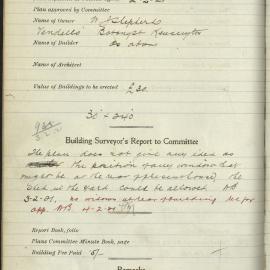 Plan approved by Committee
Name of Owner W J Shepherd
Name of Builder As above
Name of Architect
Value of Buildings to be erected £30.
Building Surveyor's Report to Committee
The plan does not give any idea as
the position of any window that
might be at the rear of present house, the
shed at the yard could be allowed
3-2-01. no windows at rear
app. 4-2-01
Report Book, folio
Plans Committee Minute Book, page
Building Fee Paid 5/-
Remarks